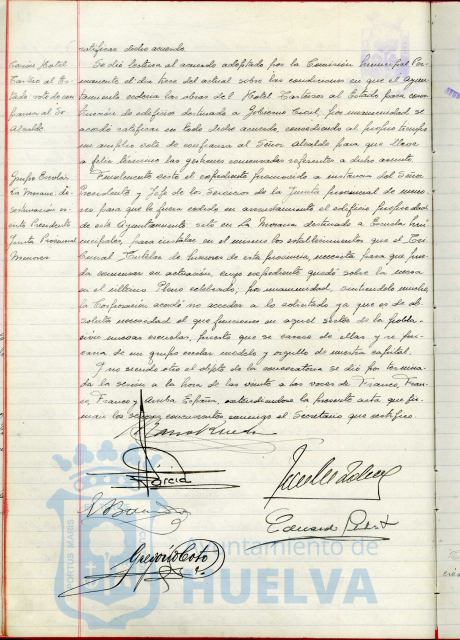 ratificar dicho acuerdo.
Cesión Hotel
Tarteso al Es-
tado voto de con-
fianza al Sr
Alcalde
Se dió lectura al acuerdo adoptado por la Comisión Municipal Per-
manente el dia trece del actual sobre las condiciones en que el Ayun-
tamiento cederia las obras del Hotel Tarteso al Estado para cons-
trucción de edificio destinado a Gobierno Civil, por unanimidad se
acordó ratificar en todo dicho acuerdo, concediendo al propio tiempo
un amplio voto de confianza al Señor Alcalde para que lleve
a feliz término las gestiones comenzadas referentes a dicho asunto.
Grupo Escolar
La Morana: de-
sestimación es-
crito Presidente
Junta Provincial
Menores
Finalmente visto el expediente promovido a instancia del Señor
Presidente y Jefe de los Servicios de la Junta provincial de meno-
res para que le fuera cedido en arrendamiento el edificio propiedad
de este Ayuntamiento sito en La Morana destinado a Escuela mu-
nicipales, para instalar en el mismo los establecimientos que el Tri-
bunal Tutelar de menores de esta provincia, necesita para que pue-
da comenzar su actuación, cuyo expediente quedó sobre la mesa
en el último Pleno celebrado, por unanimidad, sintiéndolo mucho,
la Corporación acordó no acceder a lo solicitado ya que es de ab-
soluta necesidad el que funcionen en aquel sector de la pobla-
ción nuevas escuelas, puesto que se carece de ellas y se pri-
varia de un grupo escolar modelo y orgullo de nuestra capital.
Y no siendo otro el objeto de la convocatoria se dió por termina-
da la sesión a la hora de las veinte a las voces de Franco, Fran-
co, Franco y Arriba España, extendiéndose la presente acta que fir-
man los señores concurrentes conmigo el Secretario que certifico.
García
Eduardo
Gregorio Coto
PORTUS MARIS
Ayuntamiento de
HUELVA